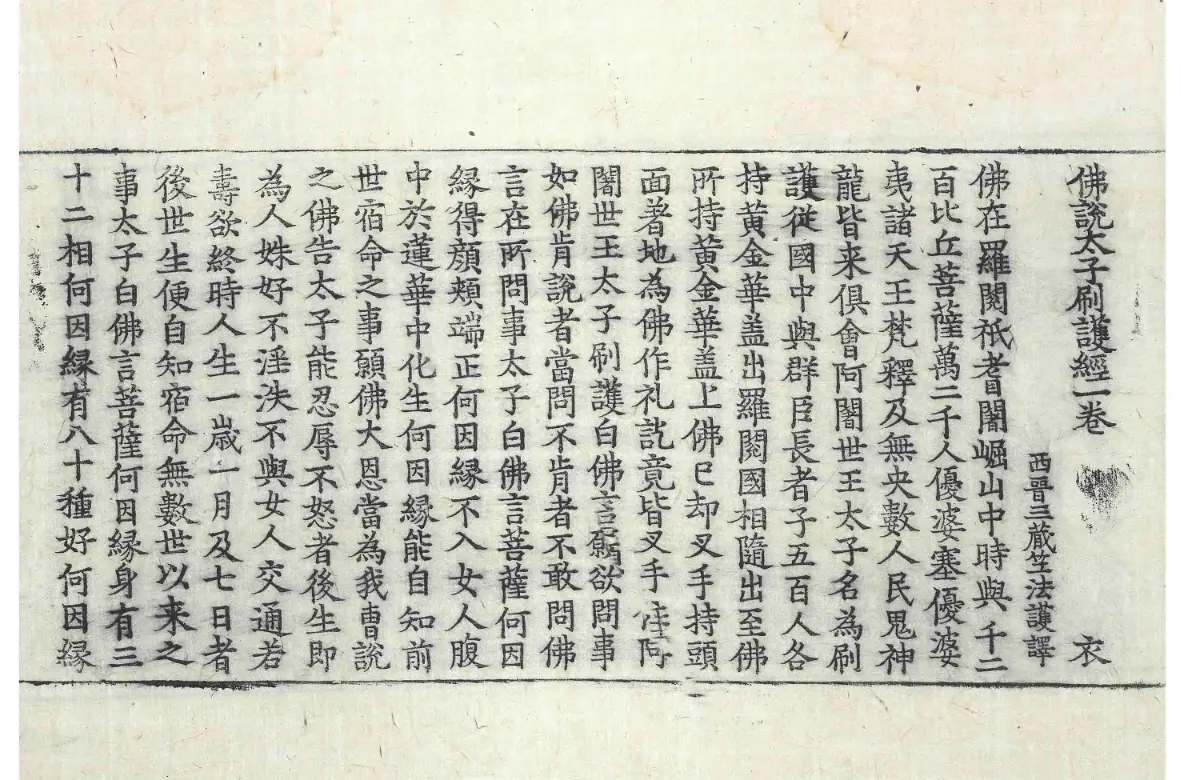 佛說太子刷護經一卷 衣
西晉三藏竺法護譯
佛在羅閱祇耆闍崛山中時與千二
百比丘菩薩萬二千人優婆塞優婆
夷諸天王梵釋及無央數人民鬼神
龍皆来俱會阿闍世王太子名為刷
護從國中與群臣長者子五百人各
持黃金華盖出羅閱國相隨出至佛
所持黃金華盖上佛已却叉手持頭
面著地為佛作礼訖竟皆叉手住阿
闍世王太子刷護白佛言願欲問事
如佛肯說者當問不肯者不敢問佛
言在所問事太子白佛言菩薩何因
縁得顏頰端正何因縁不入女人腹
中於蓮華中化生何因縁能自知前
世宿命之事願佛大恩當為我曹說
之佛告太子能忍辱不怒者後生即
為人姝好不淫泆不與女人交通若
壽欲終時人生一歲一月及七日者
後世生便自知宿命無數世以来之
事太子白佛言菩薩何因縁身有三
十二相何因縁有八十種好何因縁